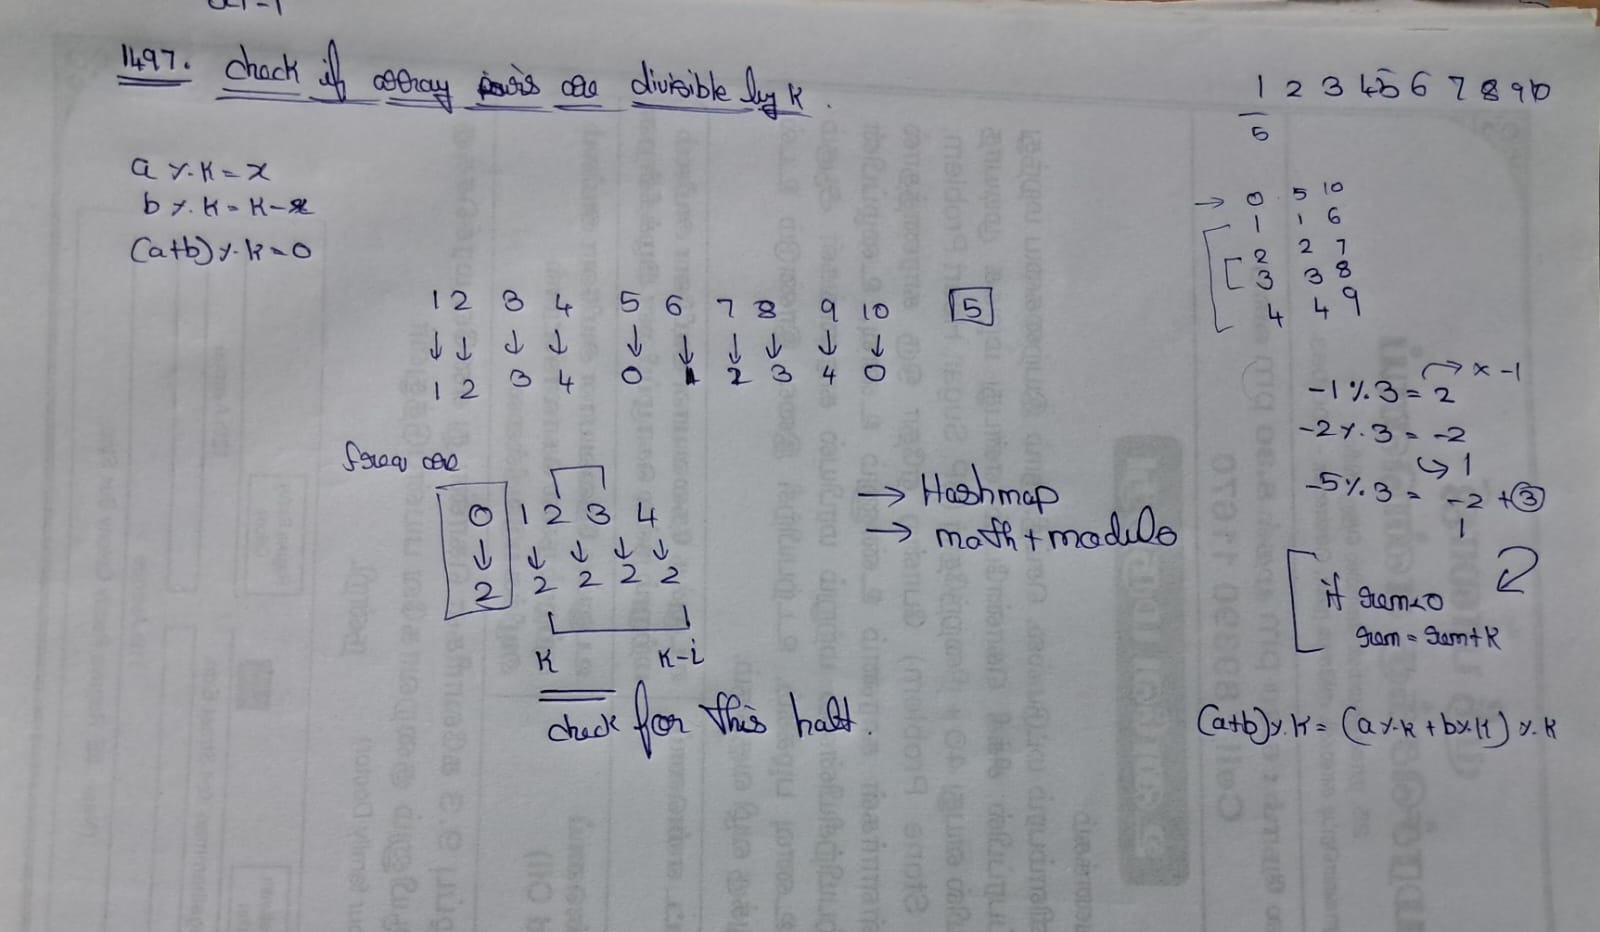 1497. check if array pairs are divisible by k.
a % k = x
b % k = k-x
(a+b) % k = 0
1 2 3 4 5 6 7 8 9 10 [5]
↓ ↓ ↓ ↓ ↓ ↓ ↓ ↓ ↓ ↓
1 2 3 4 0 1 2 3 4 0
freq arr
0 1 2 3 4
↓ ↓ ↓ ↓ ↓
2 2 2 2 2
k k-i
check for this half.
→ Hashmap
→ math + modulo
1 2 3 4 5 6 7 8 9 10
5
→ 0 5 10
1 1 6
2 2 7
3 3 8
4 4 9
-1 % 3 = 2 → x -1
-2 % 3 = -2
↪ 1
-5 % 3 = -2 + 3
1
if rem<0
rem = rem+k
(a+b) % k = (a % k + b % k) % k